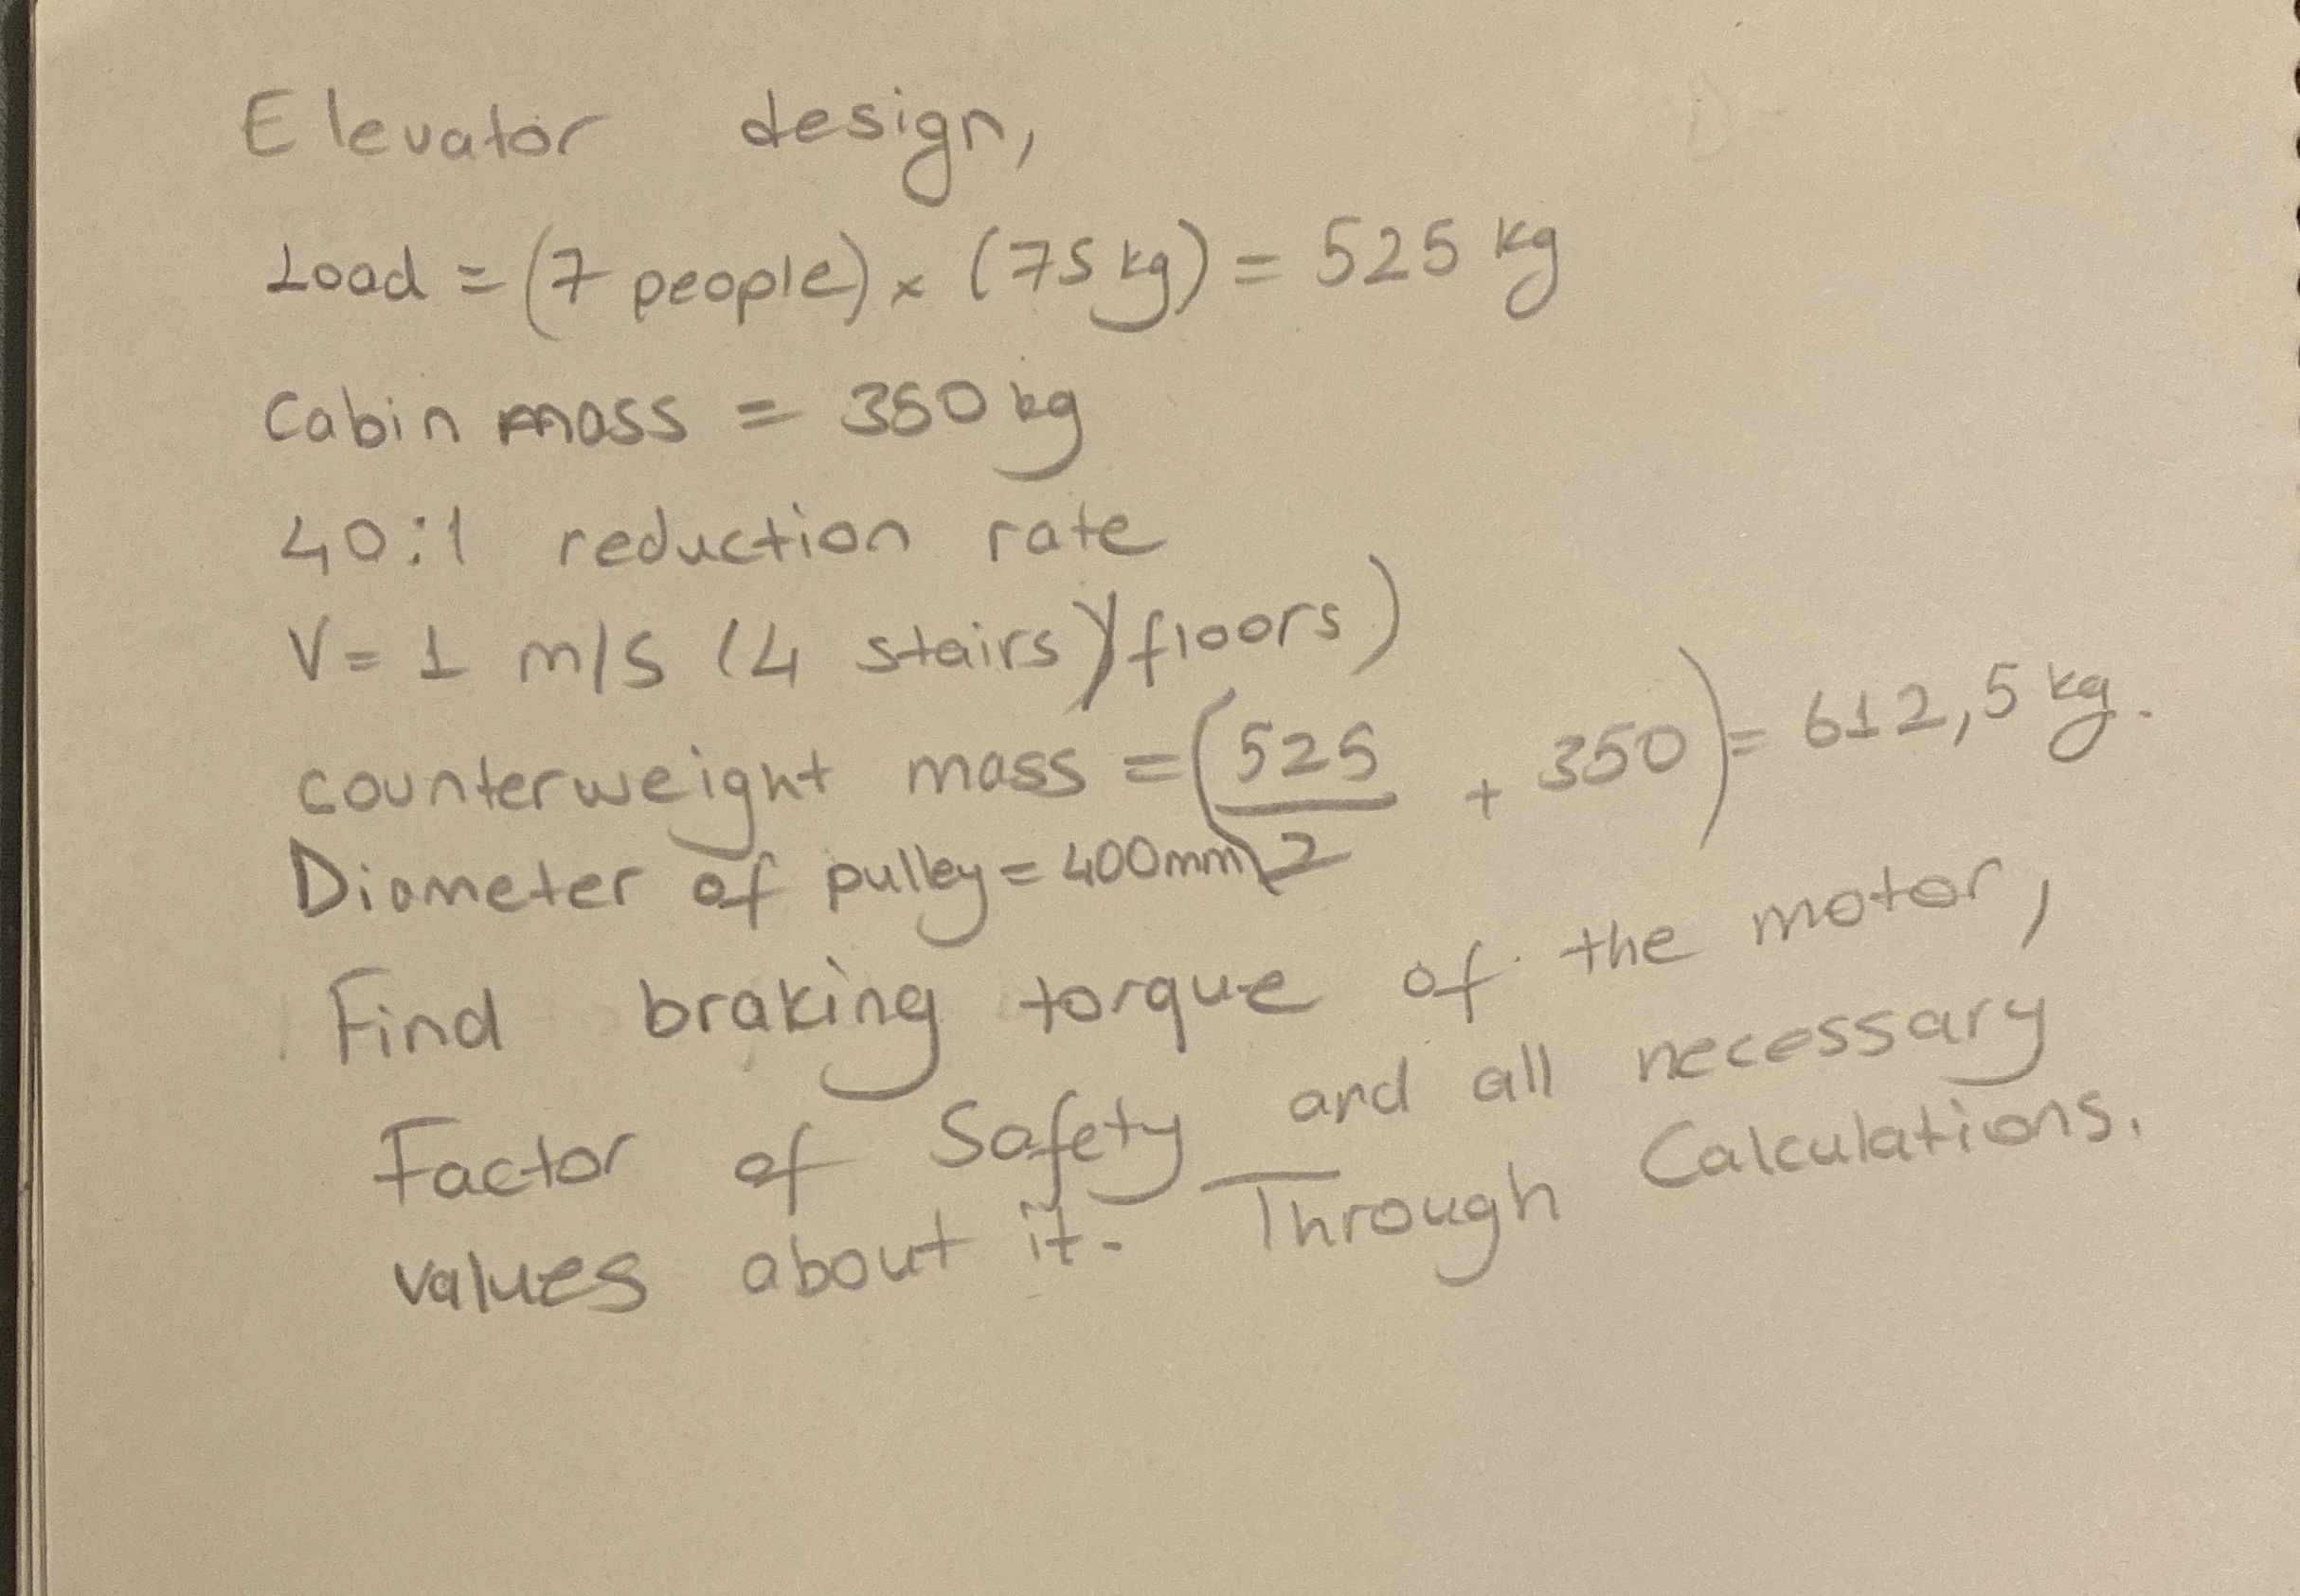 Elevator design,
Load = (7 people) x (75 kg) = 525 kg
Cabin mass = 350 kg
40:1 reduction rate
V = 1 m/s (4 stairs)(floors)
counterweight mass = (525/2 + 350) = 612,5 kg.
Diameter of pulley = 400mm
Find braking torque of the motor,
Factor of Safety and all necessary
values about it. Through Calculations.